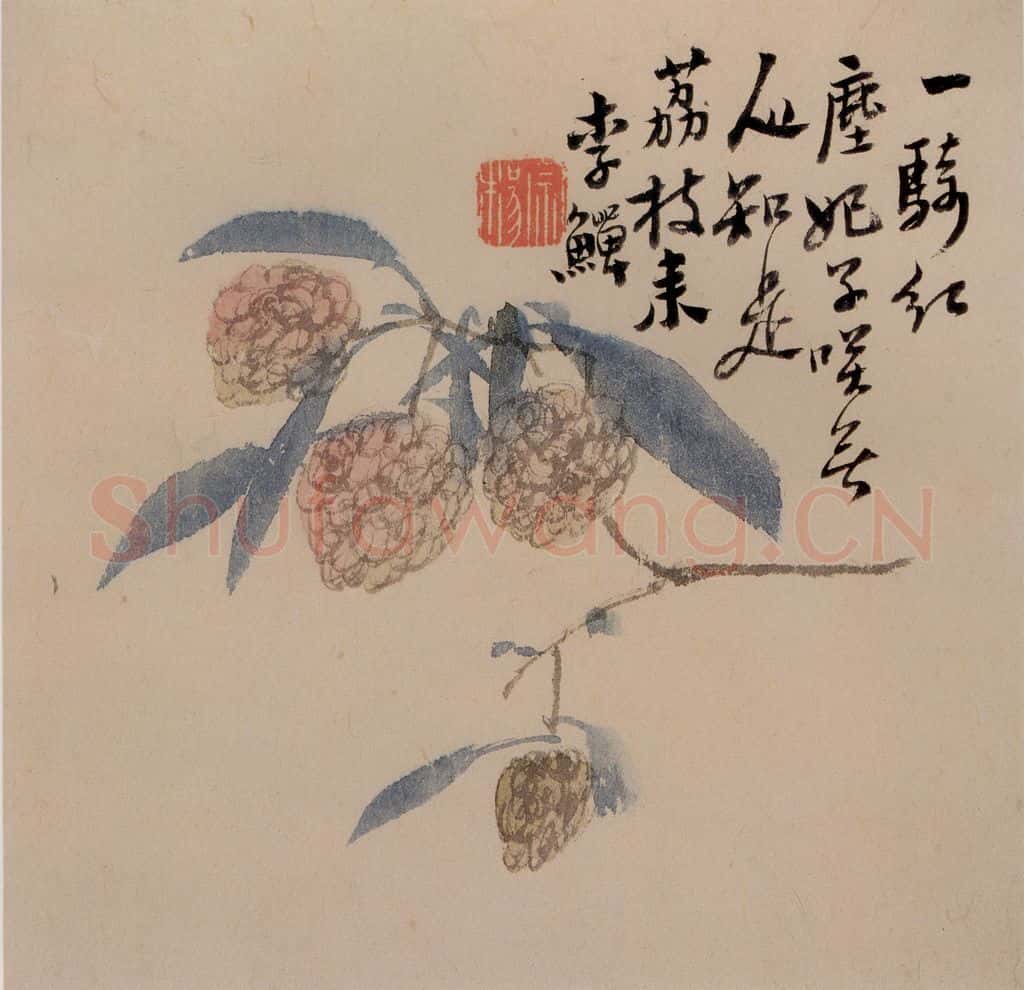 一騎紅
塵妃子咲無
人知是
荔枝来
李鱓
宗楊
Shufawang.CN